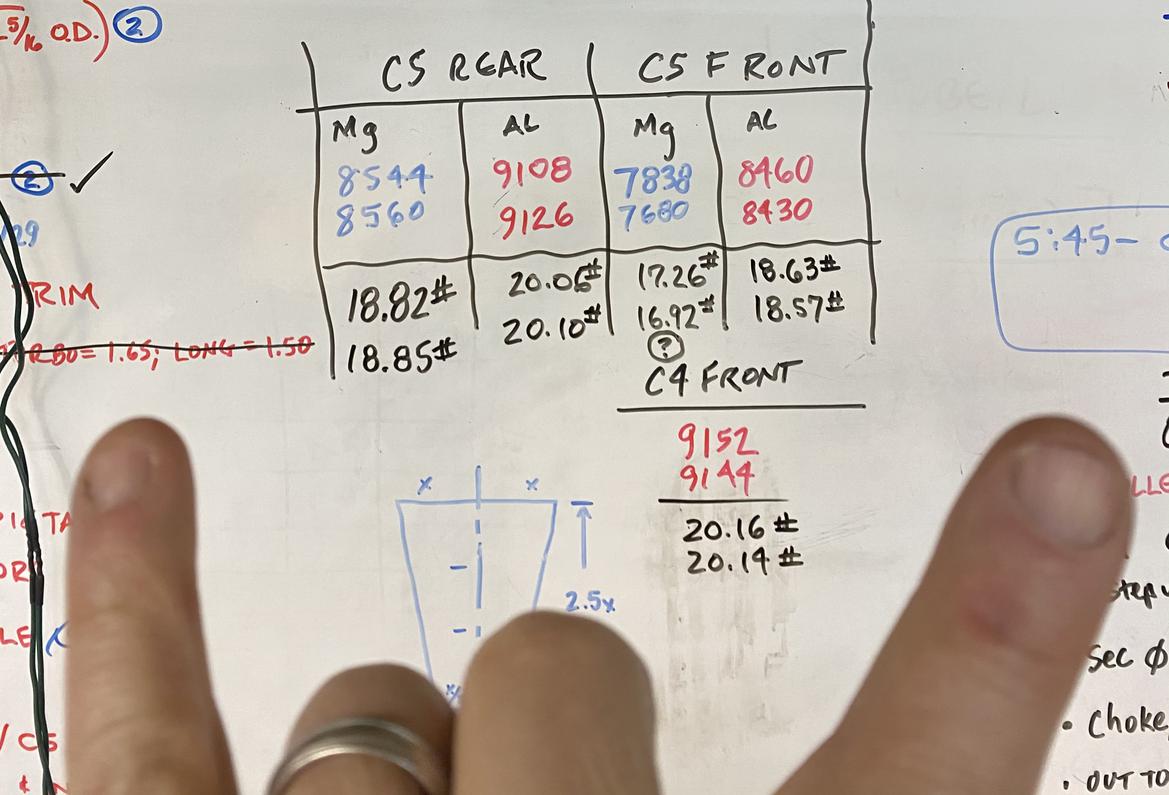 5/16 O.D.) 2
C5 REAR C5 FRONT
Mg AL Mg AL
8544 9108 7838 8460
8560 9126 7680 8430
18.82# 20.06# 17.26# 18.63#
18.85# 20.10# 16.92# 18.57#
?
C4 FRONT
9152
9144
20.16#
20.14#
2
29
RIM
RBO= 1.65; LONG= 1.50
5:45-
x x
2.5x
TA
OR
LE
/ C5
LLE
step
sec Ø
• Choke
• OUT TO